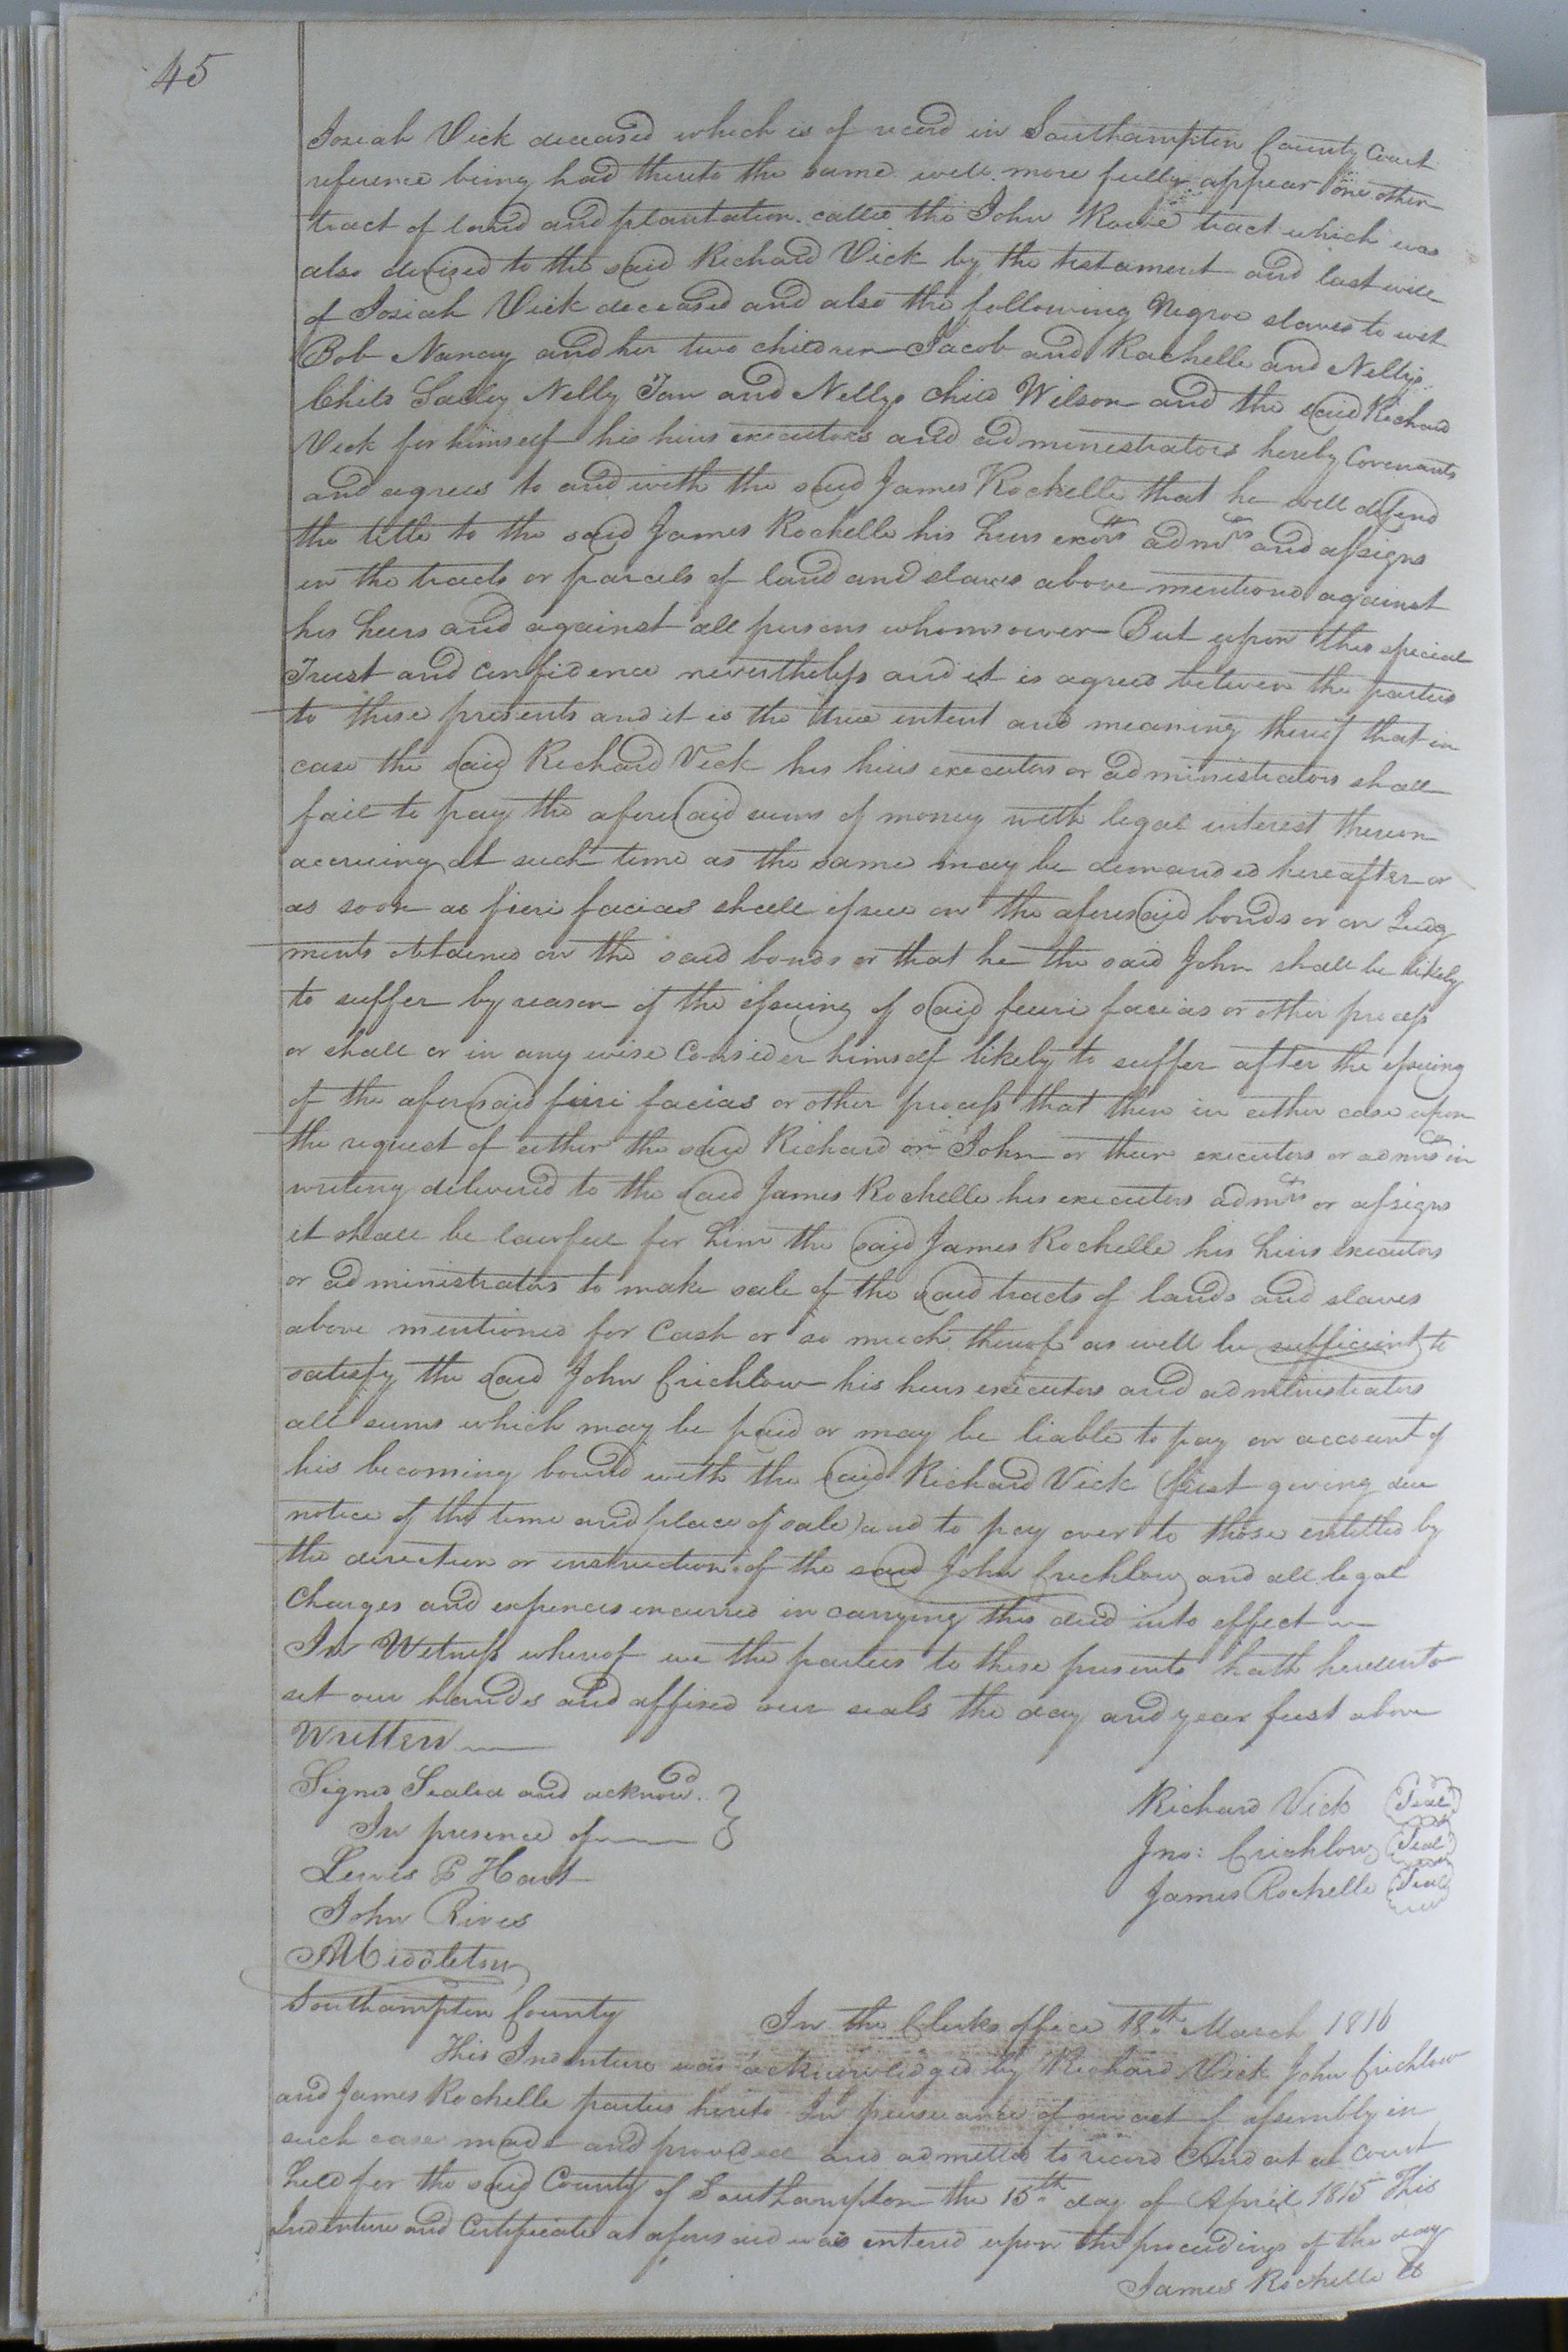 45
Josiah Vick deceased which is of record in Southampton County Court
reference being had thereto the same will more fully appear one other
tract of land and plantation called the John Rowe tract which was
also devised to the said Richard Vick by the testament and last will
of Josiah Vick deceased and also the following Negroe slaves to wit
Bob Nancy and her two children Jacob and Rachelle and Nellys
Child Salley Nelly Tom and Nellys child Wilson and the said Richard
Vick for himself his heirs executors and administrators hereby Covenants
and agrees to and with the said James Rochelle that he will defend
the title to the said James Rochelle his heirs exors admrs and assigns
in the tracts or parcels of land and slaves above mentiond against
his heirs and against all persons whomsoever But upon this special
Trust and confidence nevertheless and it is agreed between the parties
to these presents and it is the true intent and meaning thereof that in
case the said Richard Vick his heirs executors or administrators shall
fail to pay the aforesaid sums of money with legal interest thereon
accruing at such time as the same may be demanded hereafter or
as soon as fieri facias shall issue on the aforesaid bonds or on Judg
ments obtained on the said bonds or that he the said John shall be likely
to suffer by reason of the issuing of said fieri facias or other process
or shall or in any wise Consider himself likely to suffer after the issuing
of the aforesaid fieri facias or other process that then in either case upon
the request of either the said Richard or John or their executors or admrs in
writing delivered to the said James Rochelle his executors admrs or assigns
it shall be lawfull for him the said James Rochelle his heirs executors
or administrators to make sale of the said tracts of lands and slaves
above mentioned for Cash or so much thereof as will be sufficient to
satisfy the said John Crichlow his heirs executors and administrators
all sums which may be paid or may be liable to pay on account of
his becoming bound with the said Richard Vick (first giving due
notice of the time and place of sale) and to pay over to those entitled by
the direction or instruction of the said John Crichlow and all legal
Charges and expences incurred in carrying this deed into effect
In Witness whereof we the parties to these presents hath hereunto
set our hands and affixed our seals the day and year first above
Written
Signed Sealed and acknowd.
In presence of
Richard Vick Seal
Jno: Crichlow Seal
James Rochelle Seal
Lewis P Hart
John Rives
Middleton
Southampton County In the Clerks office 18th March 1816
This Indenture was acknowledged by Richard Vick John Crichlow
and James Rochelle parties hereto In pursuance of an act of assembly in
such case made and provided and admitted to record And at a Court
held for the said County of Southampton the 15th day of April 1815 This
Indenture and Certificate as aforesaid was entered upon the proceedings of the day
James Rochelle